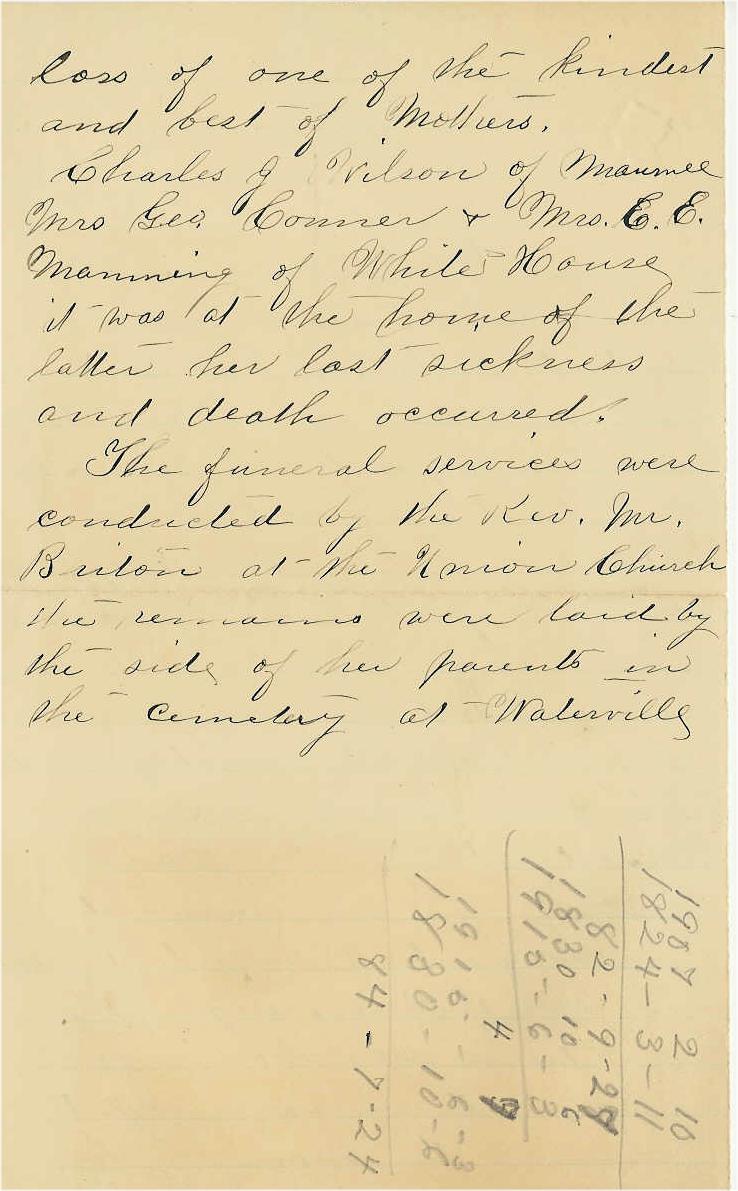 loss of one of the kindest
and best of Mothers.
Charles J Wilson of Maumee
Mrs Geo. Conner & Mrs. E. E.
Manning of White House
it was at the home of the
latter her last sickness
and death occurred.
The funeral services were
conducted by the Rev. Mr.
Briton at the Union Church
the remains were laid by
the side of her parents in
the cemetery at Waterville
1907 2 10
1824-3-11
82-9-28
1830 10 6
1910-6-3
4
1910-6-3
1880-10-6
84-7-24